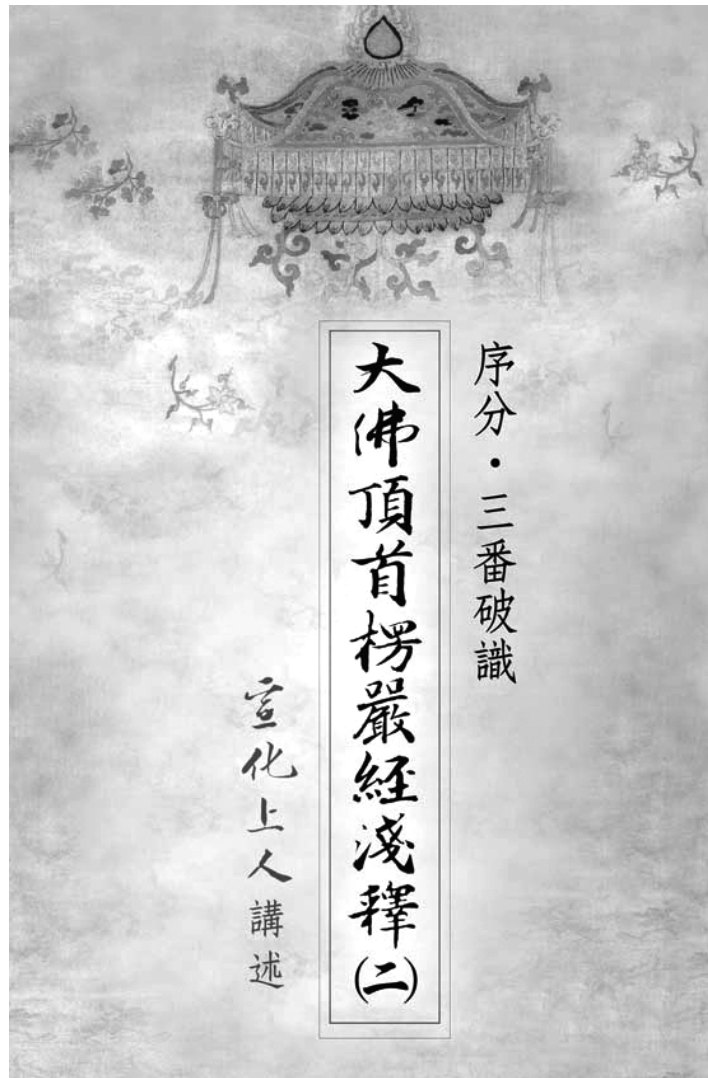 序分・三番破識
大佛頂首楞嚴經淺釋(二)
宣化上人講述